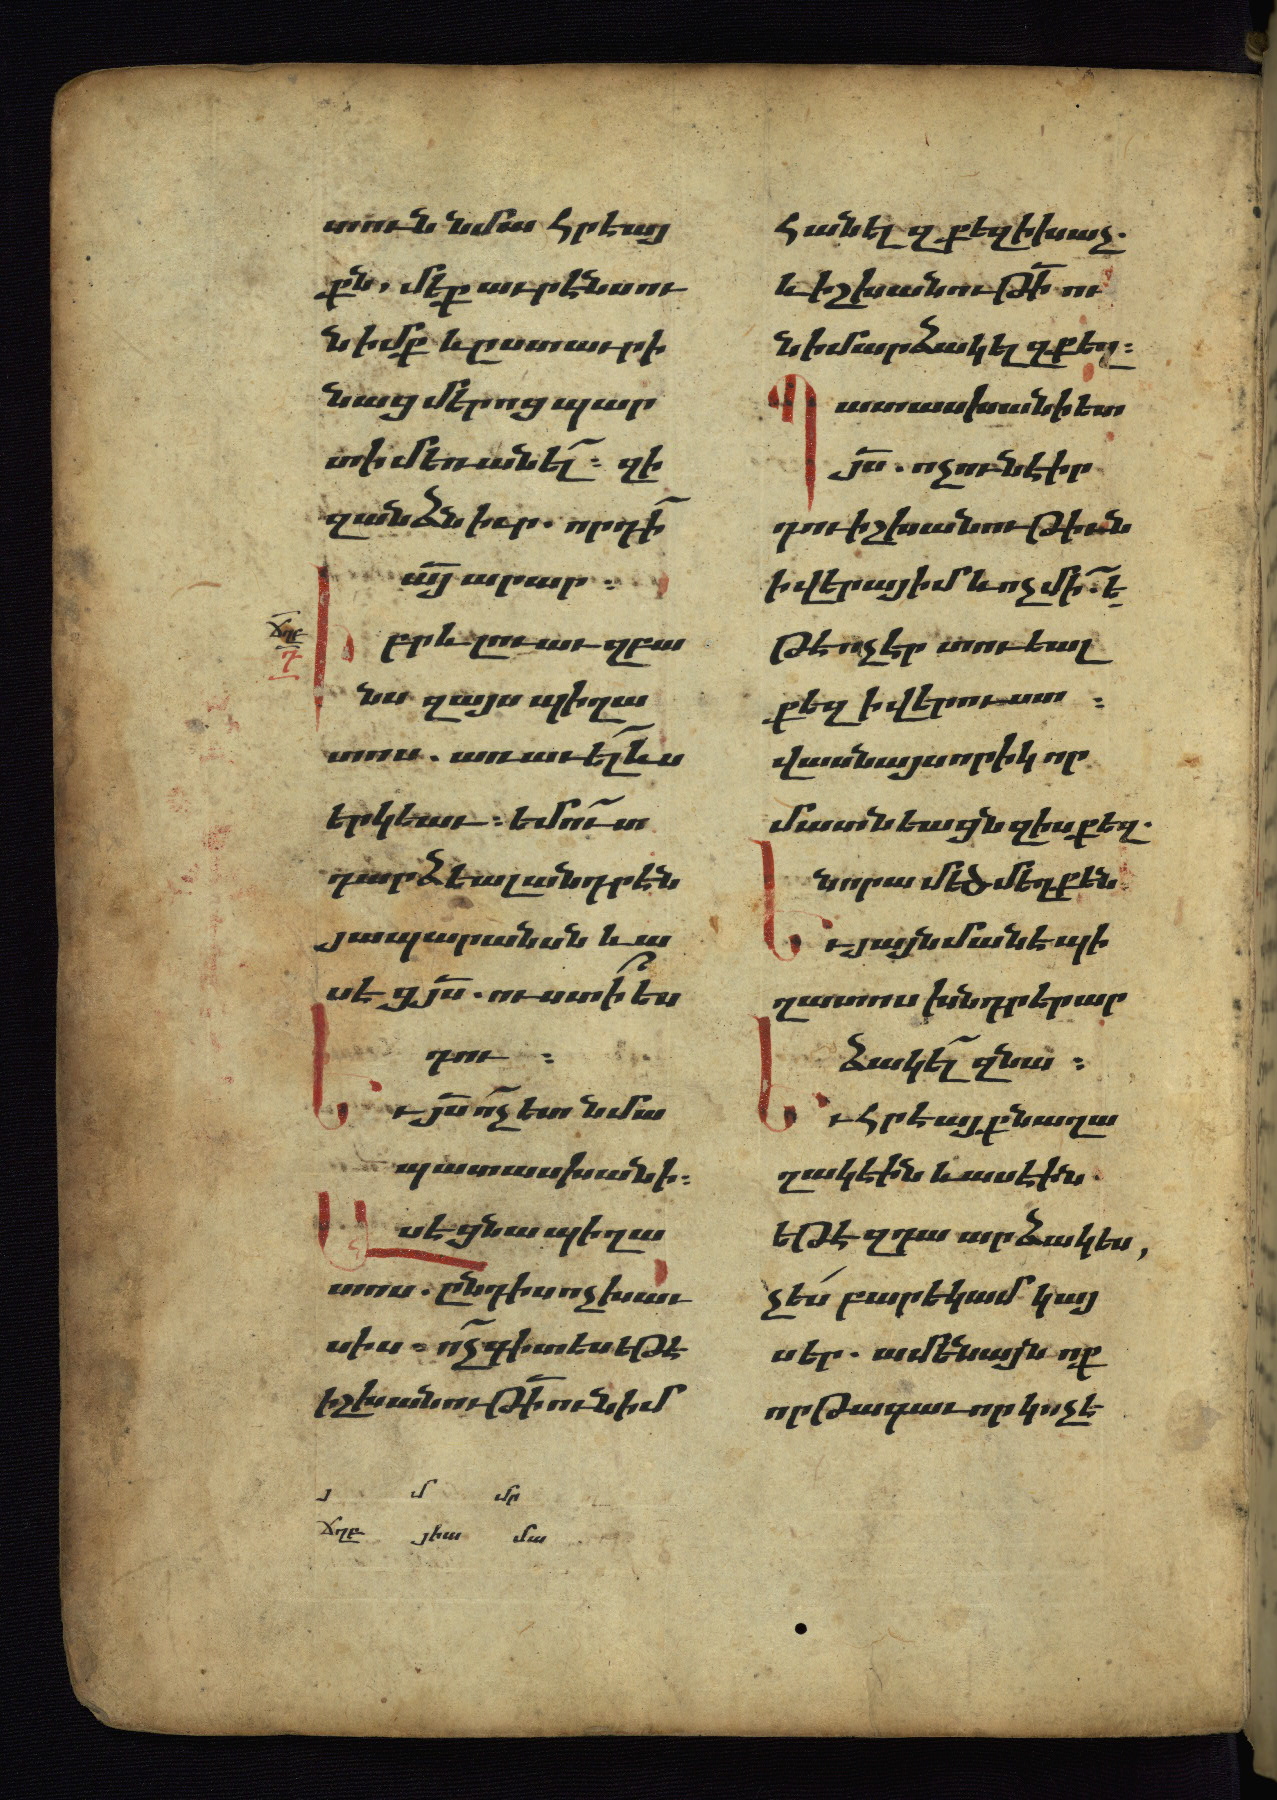 տուն նմա հրէայ
քն. մեք աւրէնս ու
նիմք և ըստ աւրի
նաց մերոց պար
տի մեռանել։ զի
զանձն իւր. որդի
ա՟յ արար։
Իբրև լուաւ զբա
նս զայս պիղա
տոս. առաւել ևս
երկեաւ։ և մուտ
դարձեալ անդրէն
յապարանսն և ա
սէ ցյ՟ս. ուստի ես
դու։
Եւ յ՟ս ոչ ետ նմա
պատասխանի։
Ասէ ցնա պիղա
տոս. ընդ իս ոչ խաւ
սիս։ ոչ գիտես եթէ
իշխանութի՟ ունիմ
հանել զքեզ ի խաչ.
և իշխանութի՟ ու
նիմ արձակել զքեզ։
Պատասխանի ետ
յ՟ս. ոչ ունէիր
դու իշխանութիւն
ի վերայ իմ և ոչ մի. է
թէ ոչ էր տուեալ
քեզ ի վերուստ։
վասն այսորիկ որ
մատնեացն զիս քեզ.
նորա մեծ մեղք են
Եւ յայնմանէ պի
ղատոս խնդրէր ար
ձակել զնա։
Եւ հրէայքն աղա
ղակէին և ասէին.
եթէ զդա արձակես,
չես բարեկամ կայ
սեր. ամենայն ոք
որ թագաւոր կոչէ
ճղբ
դ
յ մ մր
ճղբ յխա մա